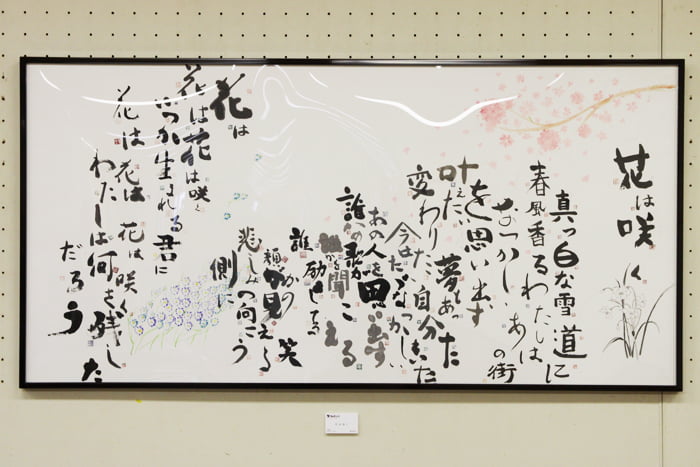 花は咲く
真っ白な雪道に
春風香るわたしは
なつかしい あ
の街
を思い出す
叶えたい夢もあった
変わりたい自分もいた
今はただなつかしい
あの人を思い出す
誰かの歌が
聞こえる
誰かを励ましてる
誰かの笑
顔が見える
悲しみの向こう
側に
花は
花は花は咲く
いつか生まれる君に
花は 花は 花は咲く
わたしは何を残した
だろう